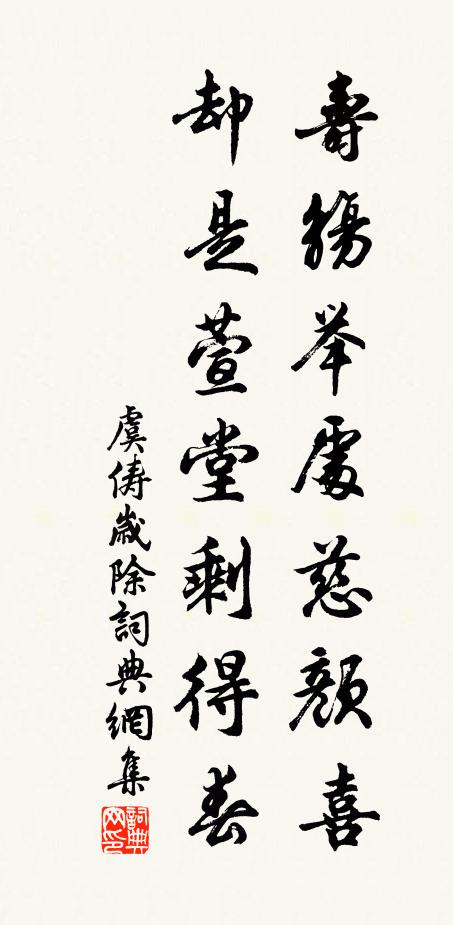 壽觴举處慈顏喜
却是萱堂剩得春
虞俦歲除詞典網集
詞典网印